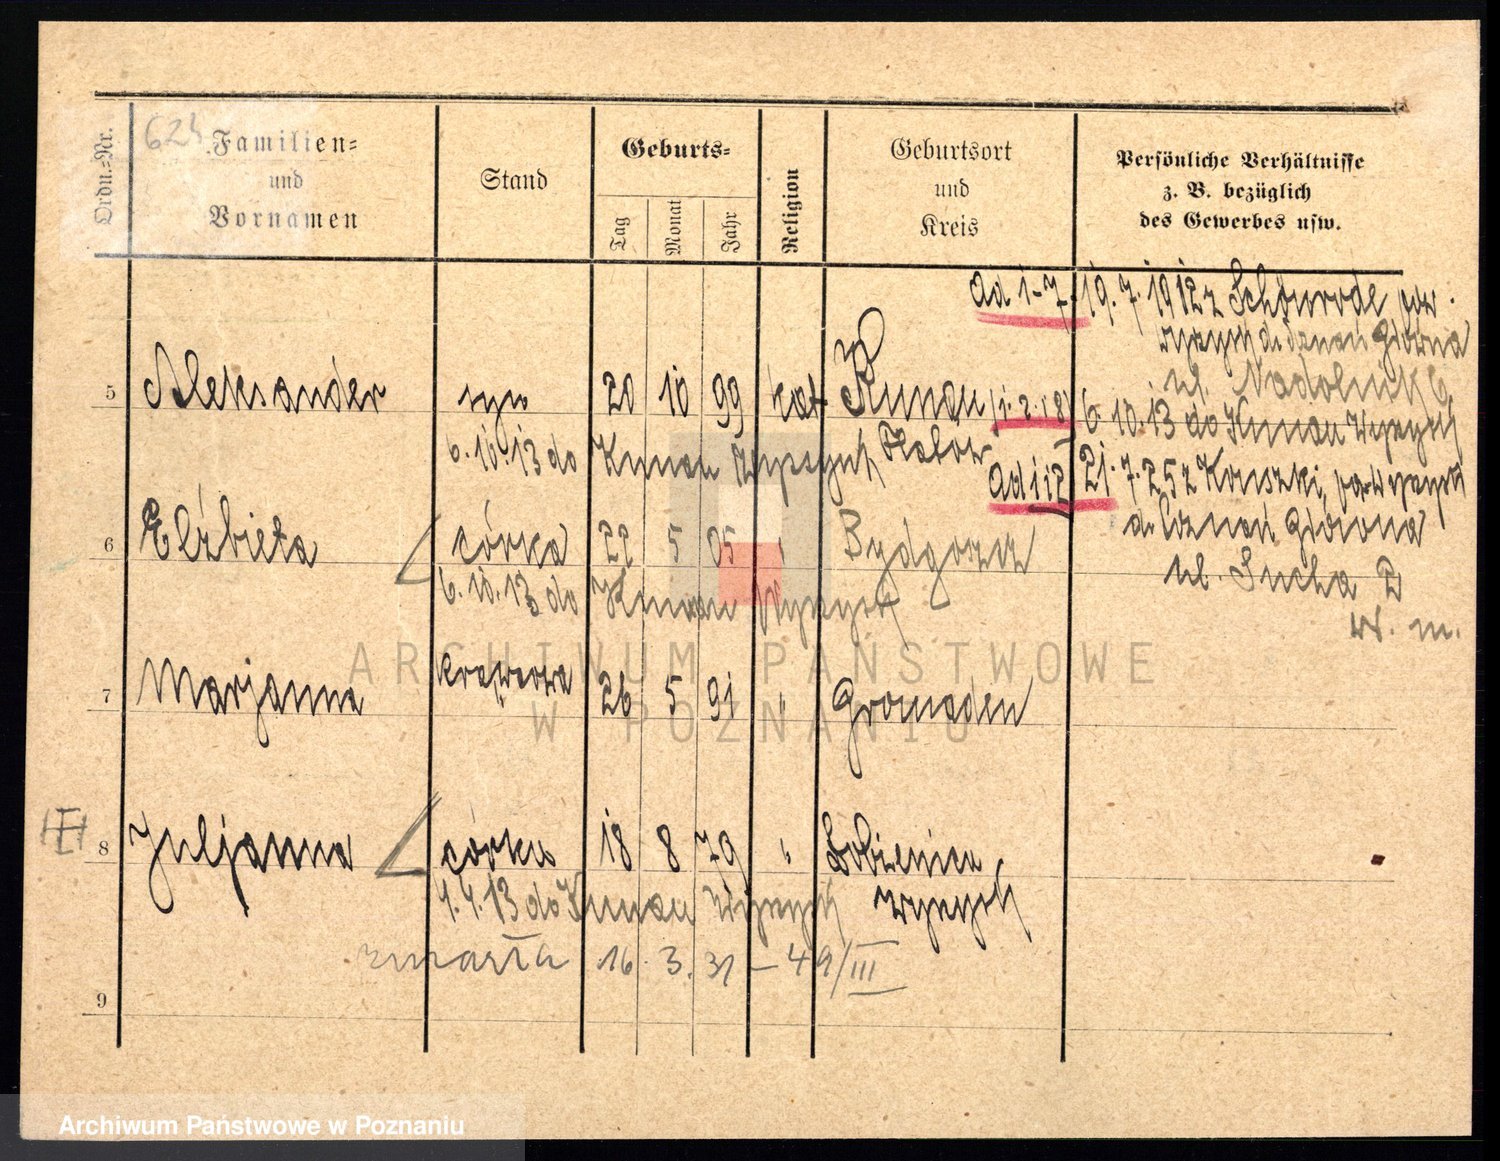 Ordn.-Nr.
Familien-
und
Vornamen
Stand
Geburts-
Tag
Monat
Jahr
Religion
Geburtsort
und
Kreis
Persönliche Verhältnisse
z. B. bezüglich
des Gewerbes usw.
ad 1-7. 19.7.1912 z Schönrode pow.
Wyrzysk do Poznań Główna
ul. Nadolnik 6.
5 Aleksander syn 20 10 99 kat Kunau (1.2.18) 6.10.13 do Kunau Wyrzysk
6.10.13 do Kunau Wyrzysk
ad 1 i 2 21.7.25 z pow Wyrzysk
do Poznań Główna
ul. Sucha 2
W. m.
6 Elżbieta córka 22 5 05 " Bydgoszcz
6.10.13 do Kunau Wyrzysk
7 Marjanna Krawcowa 26 5 91 " Gromaden
8 Juljanna córka 18 8 79 " Łobżenica
1.4.13 do Kunau Wyrzysk Wyrzysk
zmarła 16. 3. 31 – 49/III
9
ARCHIWUM PAŃSTWOWE
W POZNANIU
Archiwum Państwowe w Poznaniu